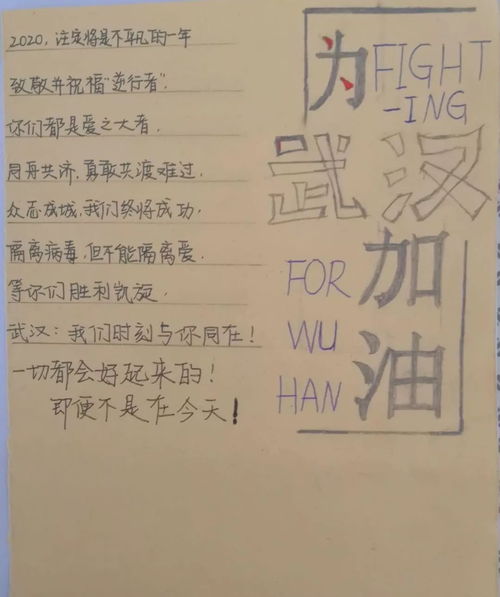 2020，注定将是不平凡的一年
致敬并祝福“逆行者”.
你们都是爱之大者.
同舟共济，勇敢共渡难过.
众志成城，我们终将成功.
隔离病毒，但不能隔离爱.
等你们胜利凯旋.
武汉：我们时刻与你同在！
一切都会好起来的！
即便不是在今天！
为
FIGHT
-ING
武汉
加油
FOR
WU
HAN